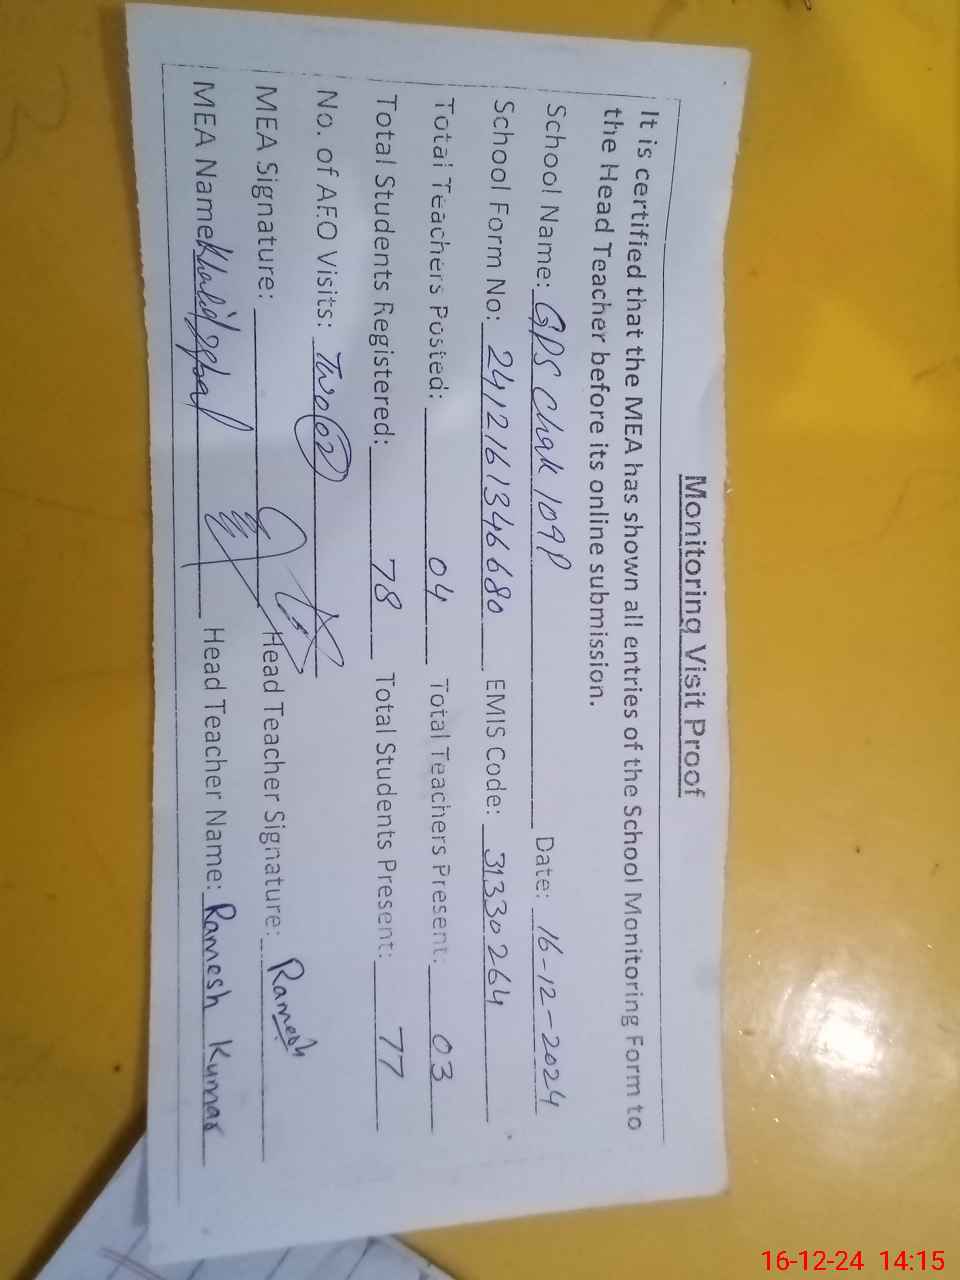 Monitoring Visit Proof
It is certified that the MEA has shown all entries of the School Monitoring Form to
the Head Teacher before its online submission.
School Name: GPS Chak 109P Date: 16-12-2024
School Form No: 2412161346680 EMIS Code: 31330264
Total Teachers Posted: 04 Total Teachers Present: 03
Total Students Registered: 78 Total Students Present: 77
No. of AEO Visits: Two 02
MEA Signature: Head Teacher Signature: Ramesh
MEA Name Khalid Iqbal Head Teacher Name: Ramesh Kumar
16-12-24 14:15